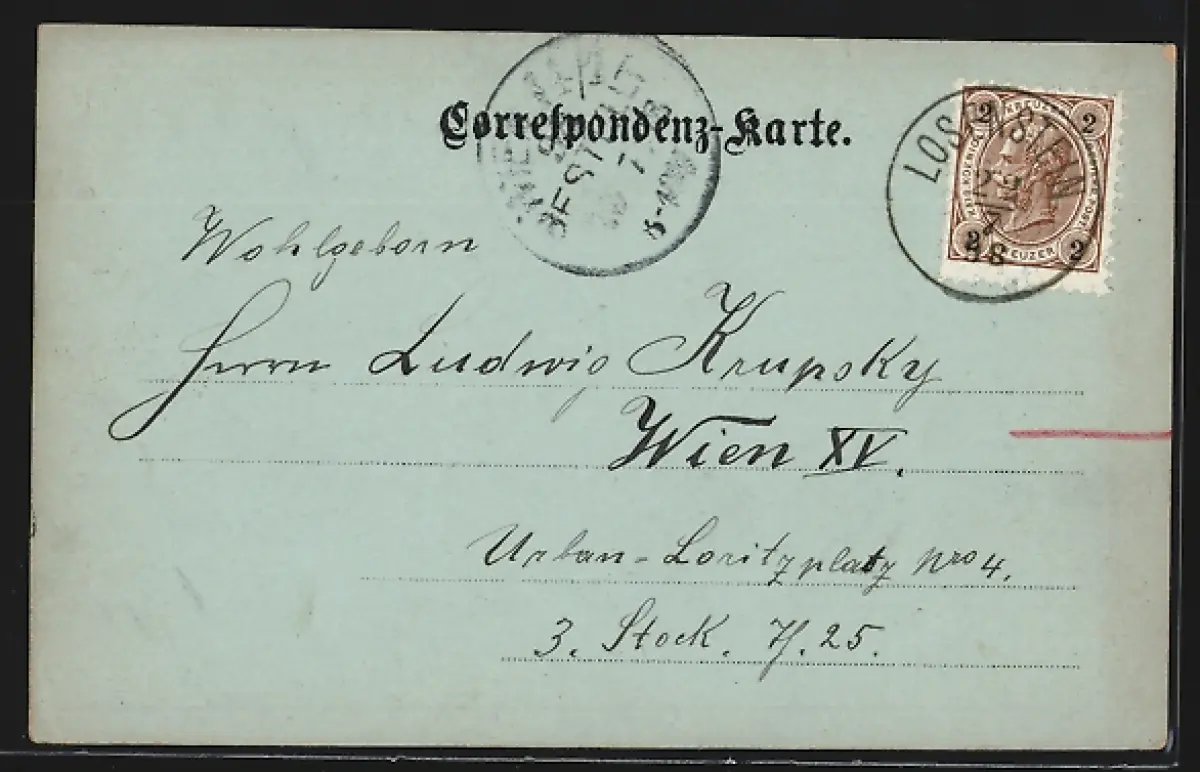 Correspondenz-Karte.
LOSENSTEIN
98
2 KREUZER 2
2 KREUZER 2
BEST
Wohlgeborn
Herrn Ludwig Krupsky
Wien XV.
Urban-Loritzplatz Nro 4.
3. Stock. T. 25.